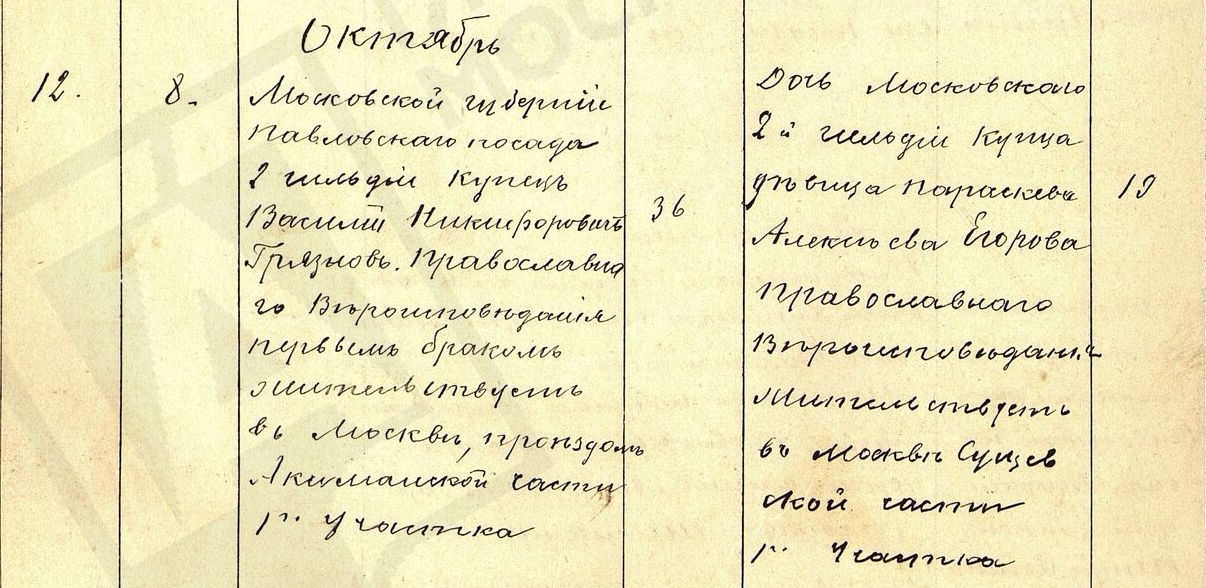 Октябрь
12.
8.
Московской губерніи
Павловскаго посада
2 гильдіи купецъ
Василій Никифоровичъ
Грязновъ. Православна
го Вѣроисповѣданія
первымъ бракомъ
жительствуетъ
въ Москвѣ, проѣздомъ
Якиманской части
1го участка
36
Дочь Московскаго
2й гильдіи купца
дѣвица Параскева
Алексѣева Егорова
православнаго
Вѣроисповѣданія
жительствуетъ
въ Москвѣ Сущев
ской части
1го участка
19